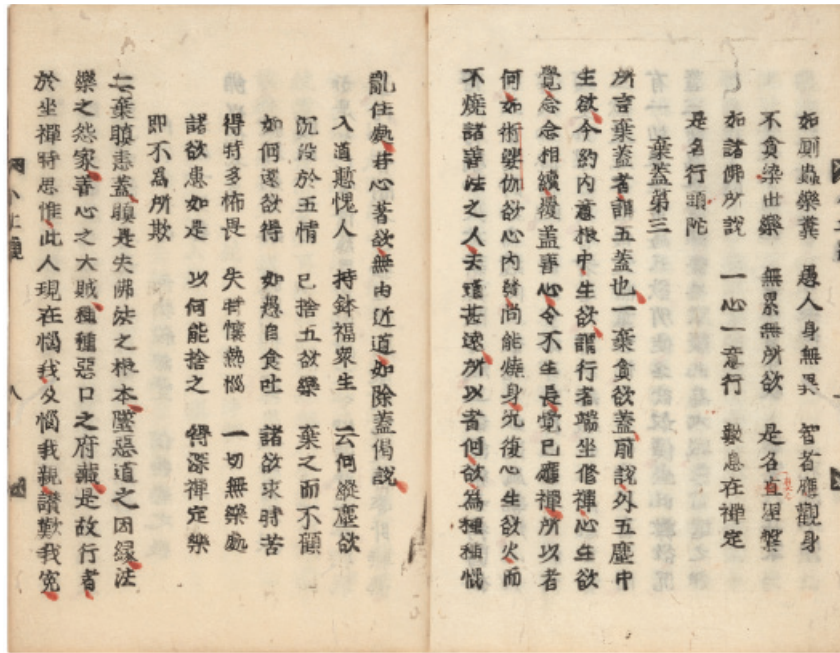 如廁蟲樂糞　愚人身無異　智者應觀身
不貪染世樂　無累無所欲　是名真涅槃
如諸佛所說　一心一意行　數息在禪定
是名行頭陀
棄蓋第三
所言棄蓋者謂五蓋也一棄貪欲蓋前說外五塵中
生欲今約內意根中生欲謂行者端坐修禪心生欲
覺念念相續覆蓋善心令不生長覺已應棄所以者
何如術婆伽欲心內發尚能燒身況復心生欲火而
不燒諸善法之人去道甚遠所以者何欲為種種惱
亂住處若心著欲無由近道如除蓋偈說
入道慙愧人　持鉢福眾生　云何縱塵欲
沉沒於五情　已捨五欲樂　棄之而不顧
如何還欲得　如愚自食吐　諸欲求時苦
得時多怖畏　失時懷熱惱　一切無樂處
諸欲患如是　以何能捨之　得深禪定樂
即不為所欺
二棄瞋恚蓋瞋是失佛法之根本墜惡道之因緣法
樂之怨家善心之大賊種種惡口之府藏是故行者
於坐禪時思惟此人現在惱我及惱我親讚歎我冤